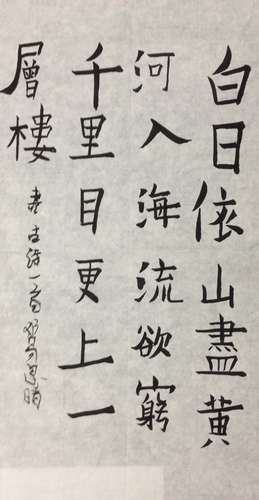 白日依山盡黃
河入海流欲窮
千里目更上一
層樓
書古詩一首